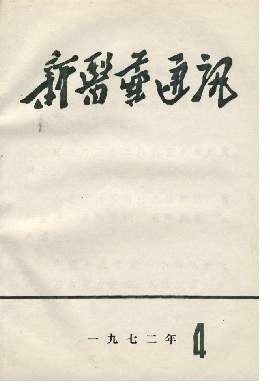 新醫藥通訊
一九七二年 4